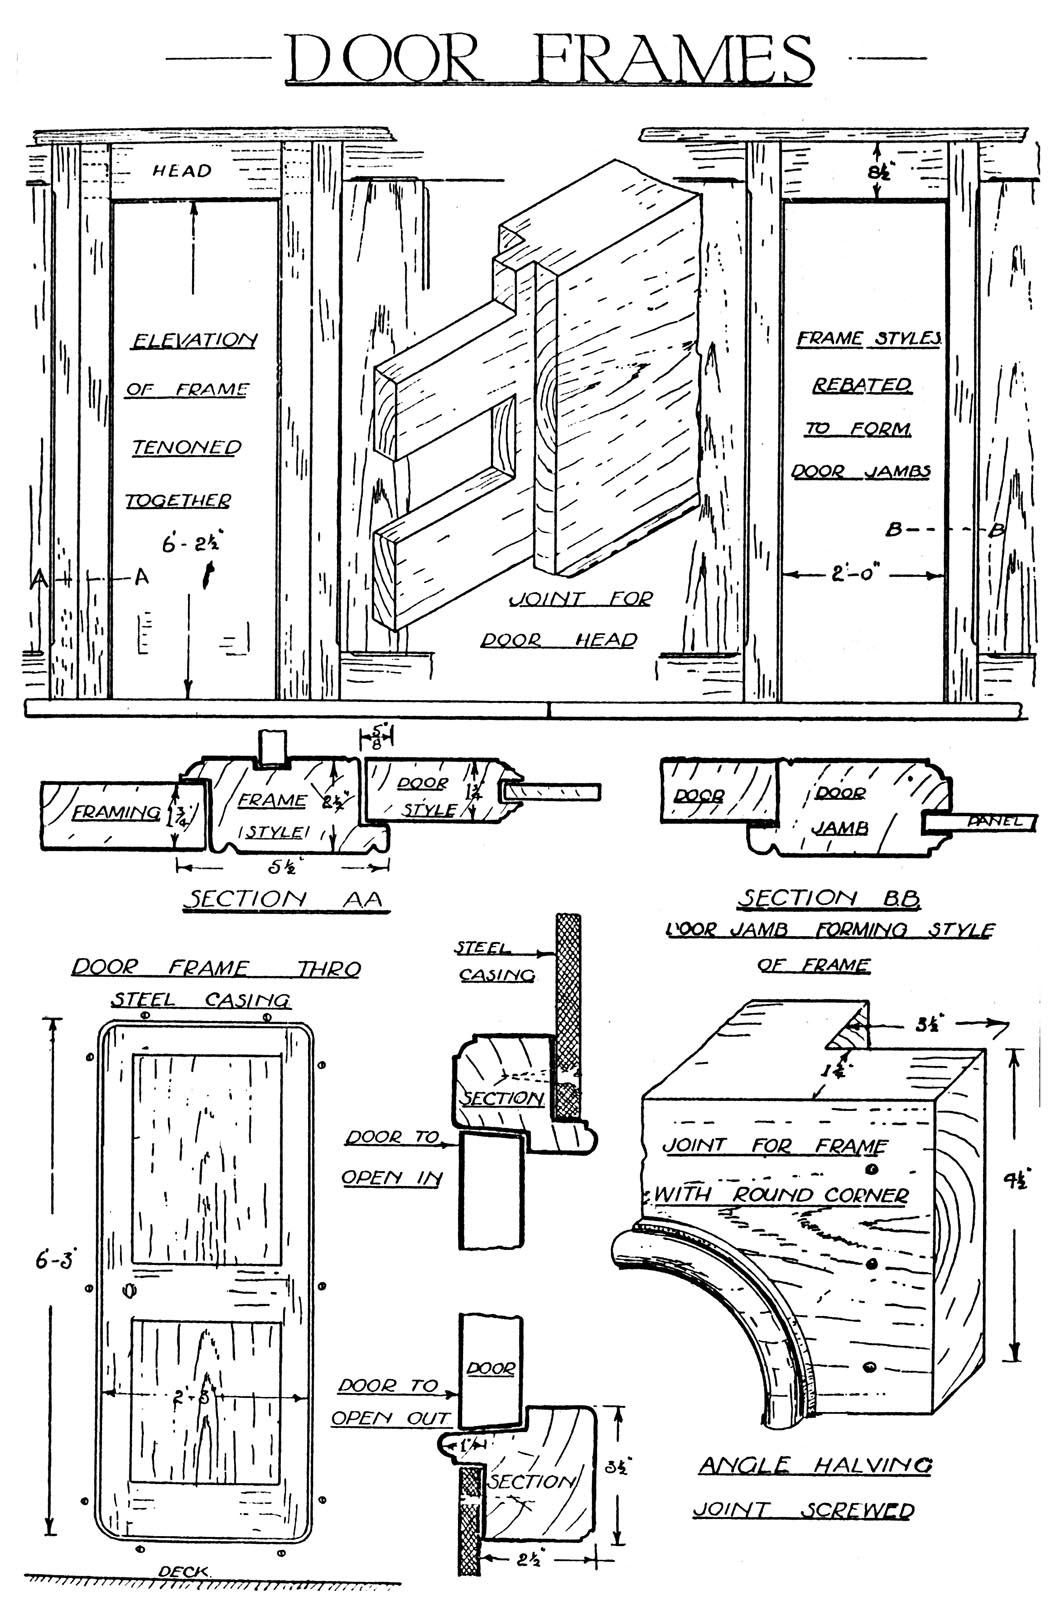 DOOR FRAMES
HEAD
8½"
ELEVATION
OF FRAME
TENONED
TOGETHER
6'-2½"
A A
FRAME STYLES
REBATED
TO FORM
DOOR JAMBS
B B
2'-0"
JOINT FOR
DOOR HEAD
5/8"
FRAMING
1¾"
FRAME
STYLE
2½"
DOOR
STYLE
1¾"
5½"
SECTION AA
DOOR
DOOR
JAMB
PANEL
SECTION B.B.
DOOR JAMB FORMING STYLE
OF FRAME
DOOR FRAME THRO
STEEL CASING
6'-3"
DECK.
STEEL
CASING
SECTION
DOOR TO
OPEN IN
DOOR
DOOR TO
OPEN OUT
1"
SECTION
3½"
2½"
3½"
JOINT FOR FRAME
WITH ROUND CORNER
4½"
ANGLE HALVING
JOINT SCREWED